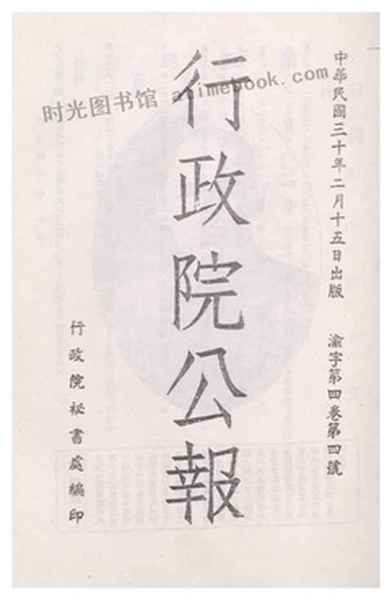 中華民國三十年二月十五日出版　渝字第四卷第四號
行政院公報
行政院祕書處編印
时光图书馆 atimebook.com